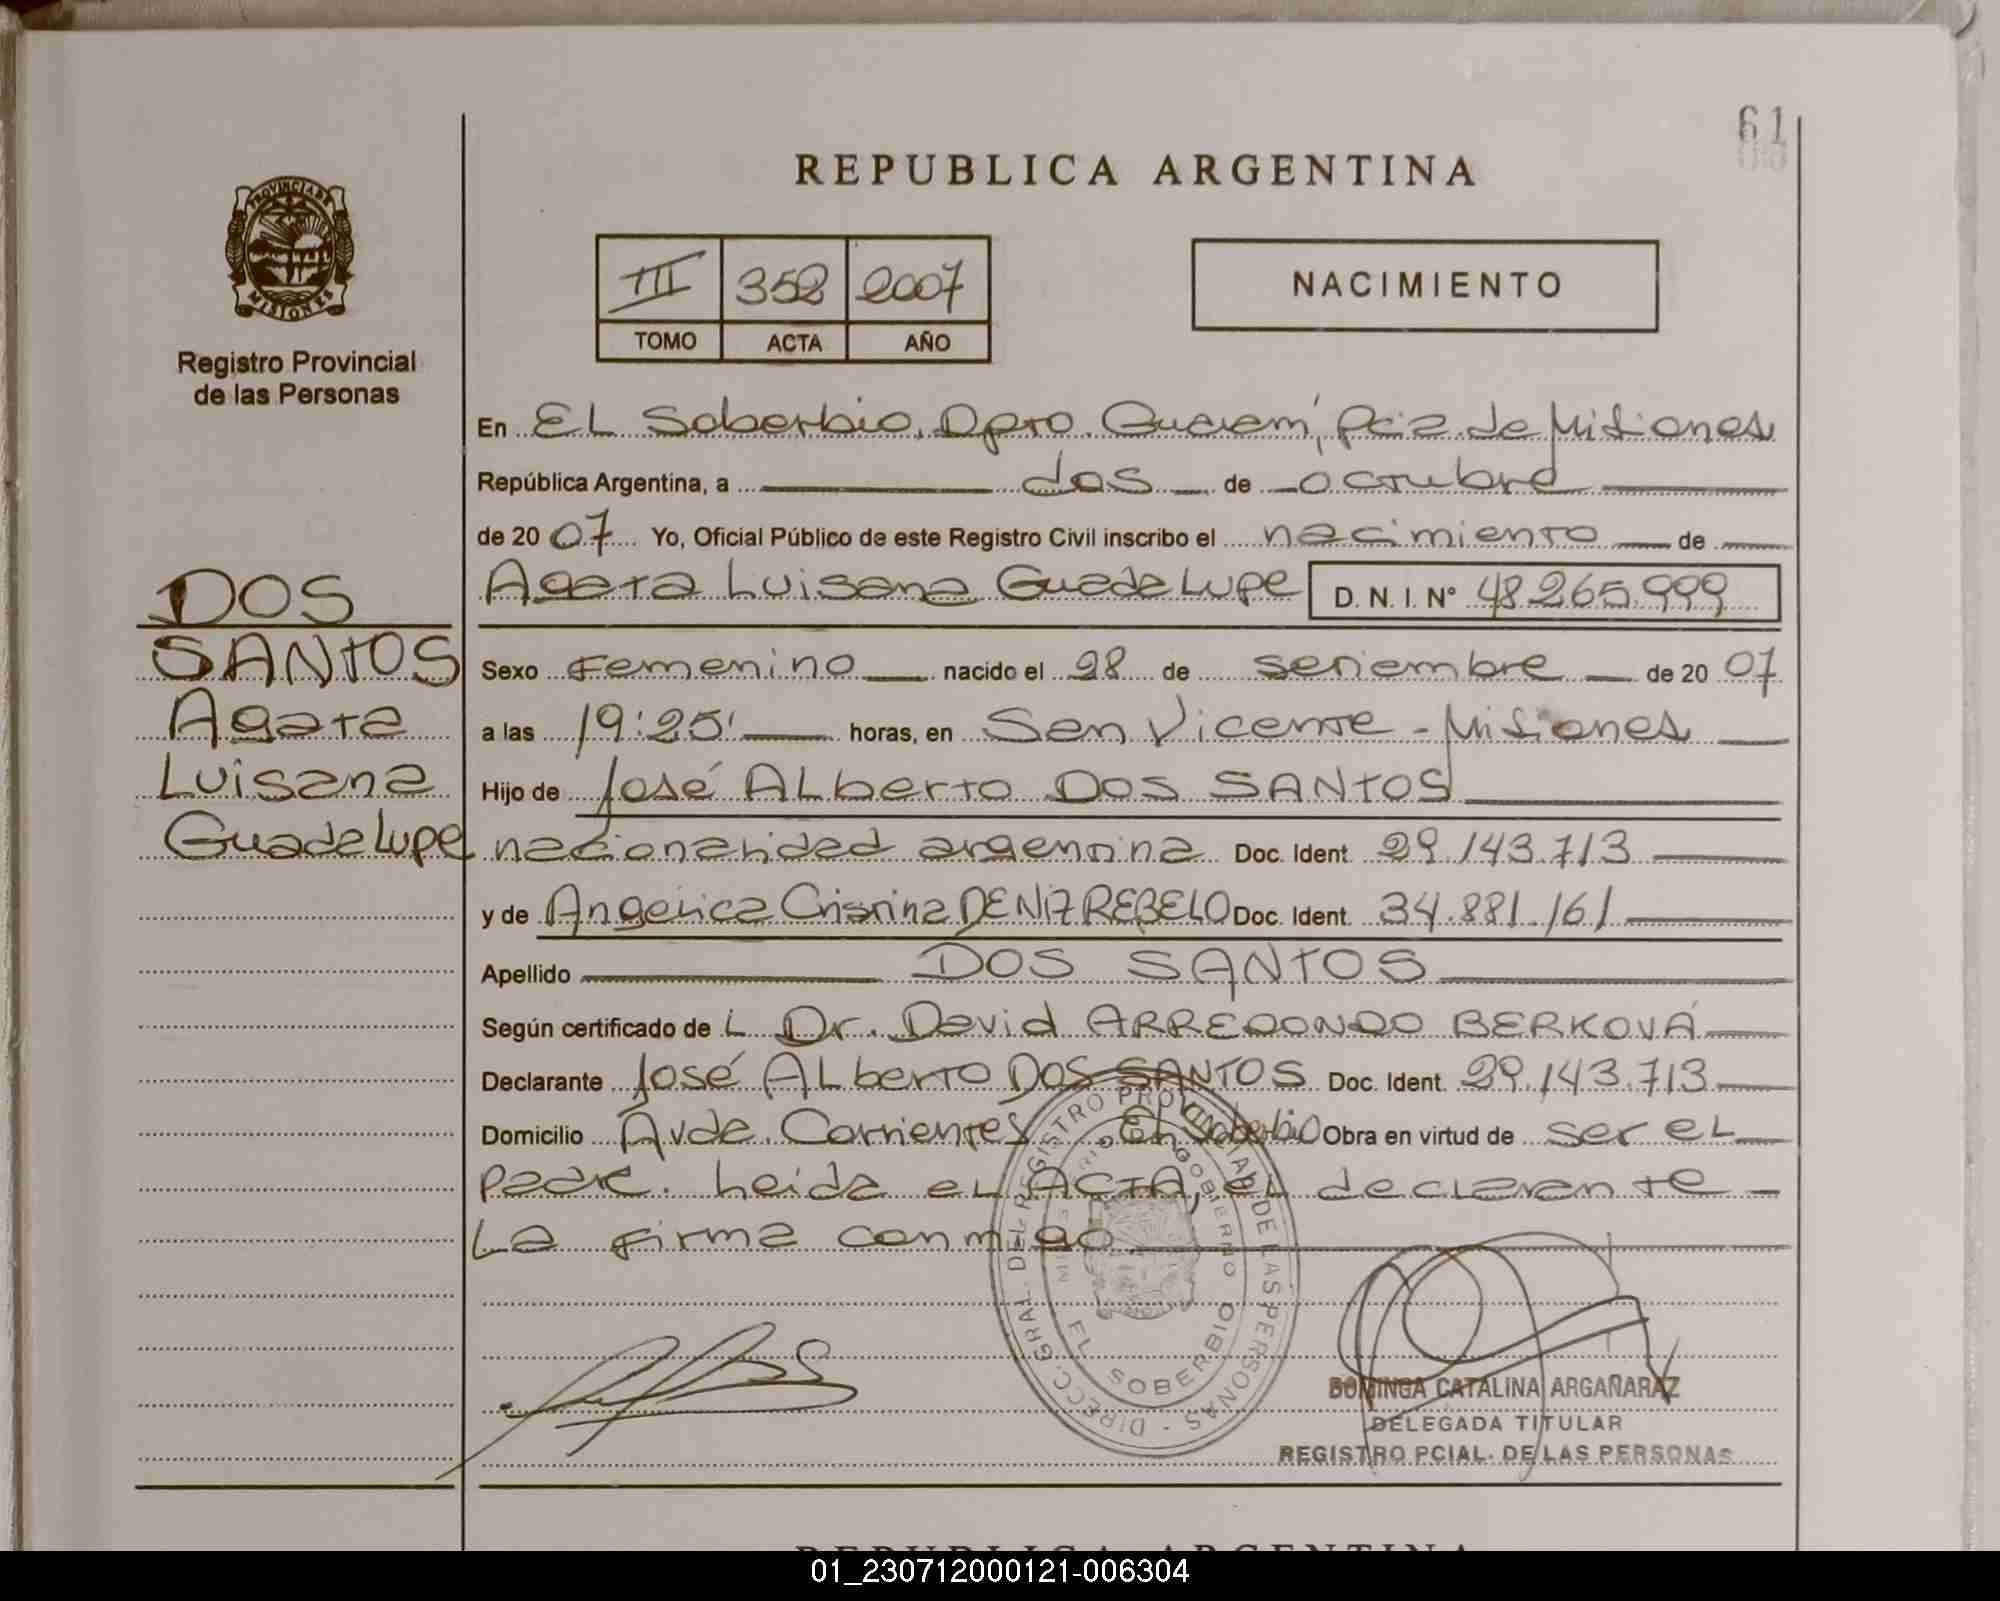 61
REPUBLICA ARGENTINA
PROVINCIA DE
MISIONES
Registro Provincial
de las Personas
III 352 2007
TOMO ACTA AÑO
NACIMIENTO
En EL Soberbio, Dpto. Guaraní, Pcia. de Misiones
República Argentina, a dos de octubre
de 2007 Yo, Oficial Público de este Registro Civil inscribo el nacimiento de
Agata Luisana Guadalupe D. N. I. N° 48.265.999
DOS
SANTOS
Agata
Luisana
Guadalupe
Sexo Femenino nacido el 28 de setiembre de 2007
a las 19:25' horas, en San Vicente - Misiones
Hijo de José ALberto DOS SANTOS
nacionalidad argentina Doc. Ident. 29.143.713
y de Angelica Cristina DENIZ REBELO Doc. Ident. 34.881.161
Apellido DOS SANTOS
Según certificado deL Dr. David ARREDONDO BERKOVÁ
Declarante José ALberto DOS SANTOS Doc. Ident. 29.143.713
Domicilio Avda. Corrientes EL Soberbio Obra en virtud de ser eL
padre. Leida eL ACTA, eL declarante
La firma conmigo.
DIRECC. GRAL. DEL REGISTRO PROVINCIAL DE LAS PERSONAS -
GOBIERNO
EL SOBERBIO
DOMINGA CATALINA ARGAÑARAZ
DELEGADA TITULAR
REGISTRO PCIAL. DE LAS PERSONAS
REPUBLICA ARGENTINA
01_230712000121-006304